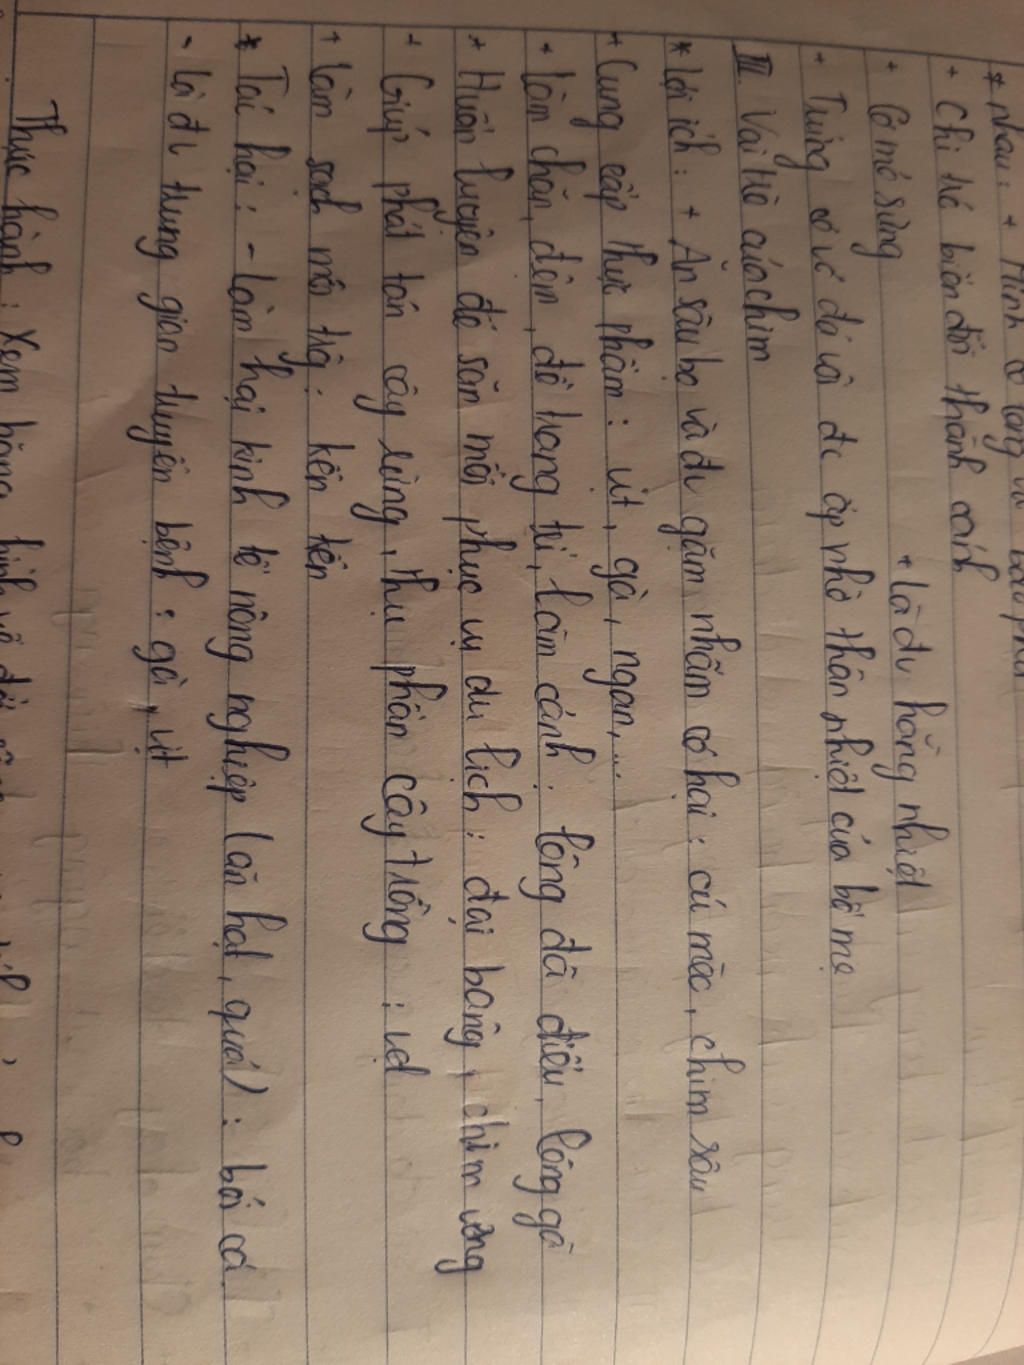 * nhau: + Mình có lông vũ bao phủ
+ Chi trc biến đổi thành cánh
+ Có mỏ sừng + Là đv hằng nhiệt
+ Trứng có vỏ đá vôi đc ấp nhờ thân nhiệt của bố mẹ
III. Vai trò của chim
* Lợi ích: + Ăn sâu bọ và đv gặm nhấm có hại: cú mèo, chim sâu
+ Cung cấp thực phẩm: vịt, gà, ngan,...
+ Làm chăn, đệm, đồ trang trí, làm cảnh: lông đà điểu, lông gà
+ Huấn luyện để săn mồi phục vụ du lịch: đại bàng, chim ưng
+ Giúp phát tán cây rừng, thụ phấn cây trồng: vẹt
+ Làm sạch môi trg: kền kền
* Tác hại: - Làm hại kinh tế nông nghiệp (ăn hạt, quả): bói cá
- Là đv trung gian truyền bệnh: gà, vịt
Thực hành: Xem băng hình về đời sống